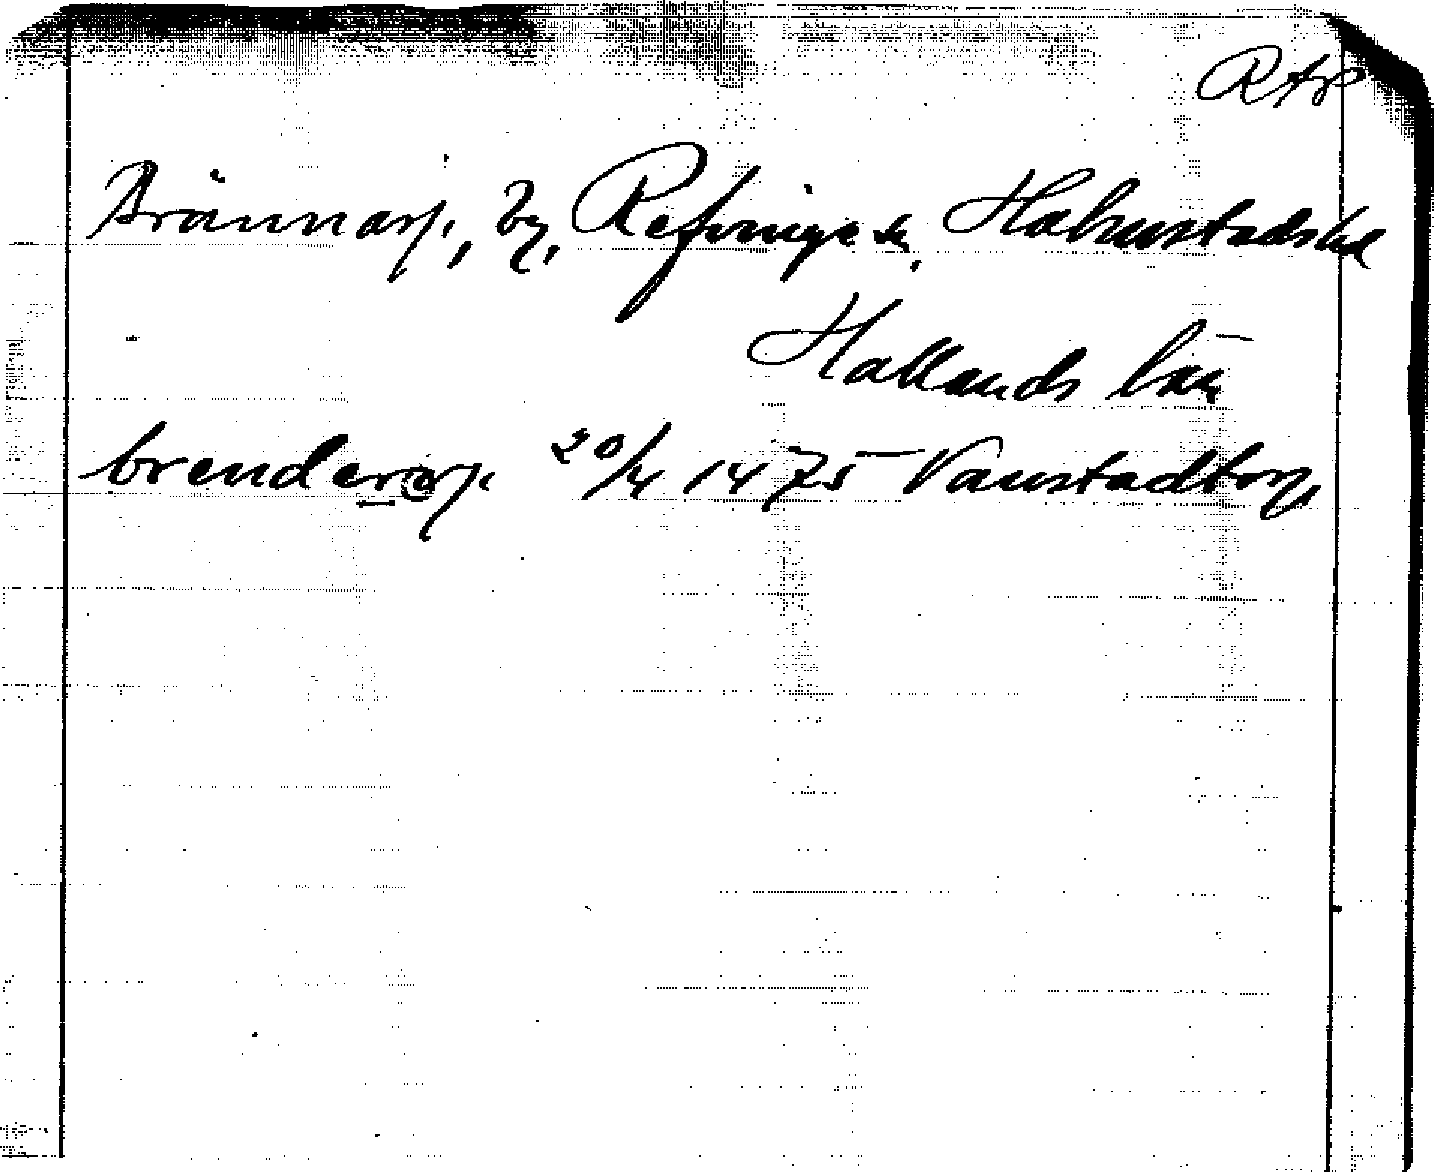 RAp
Brännarp, by, Refvinge sn, Halmstads hd
Hallands län
brenderap 20/4 1475 Vanstadtorp